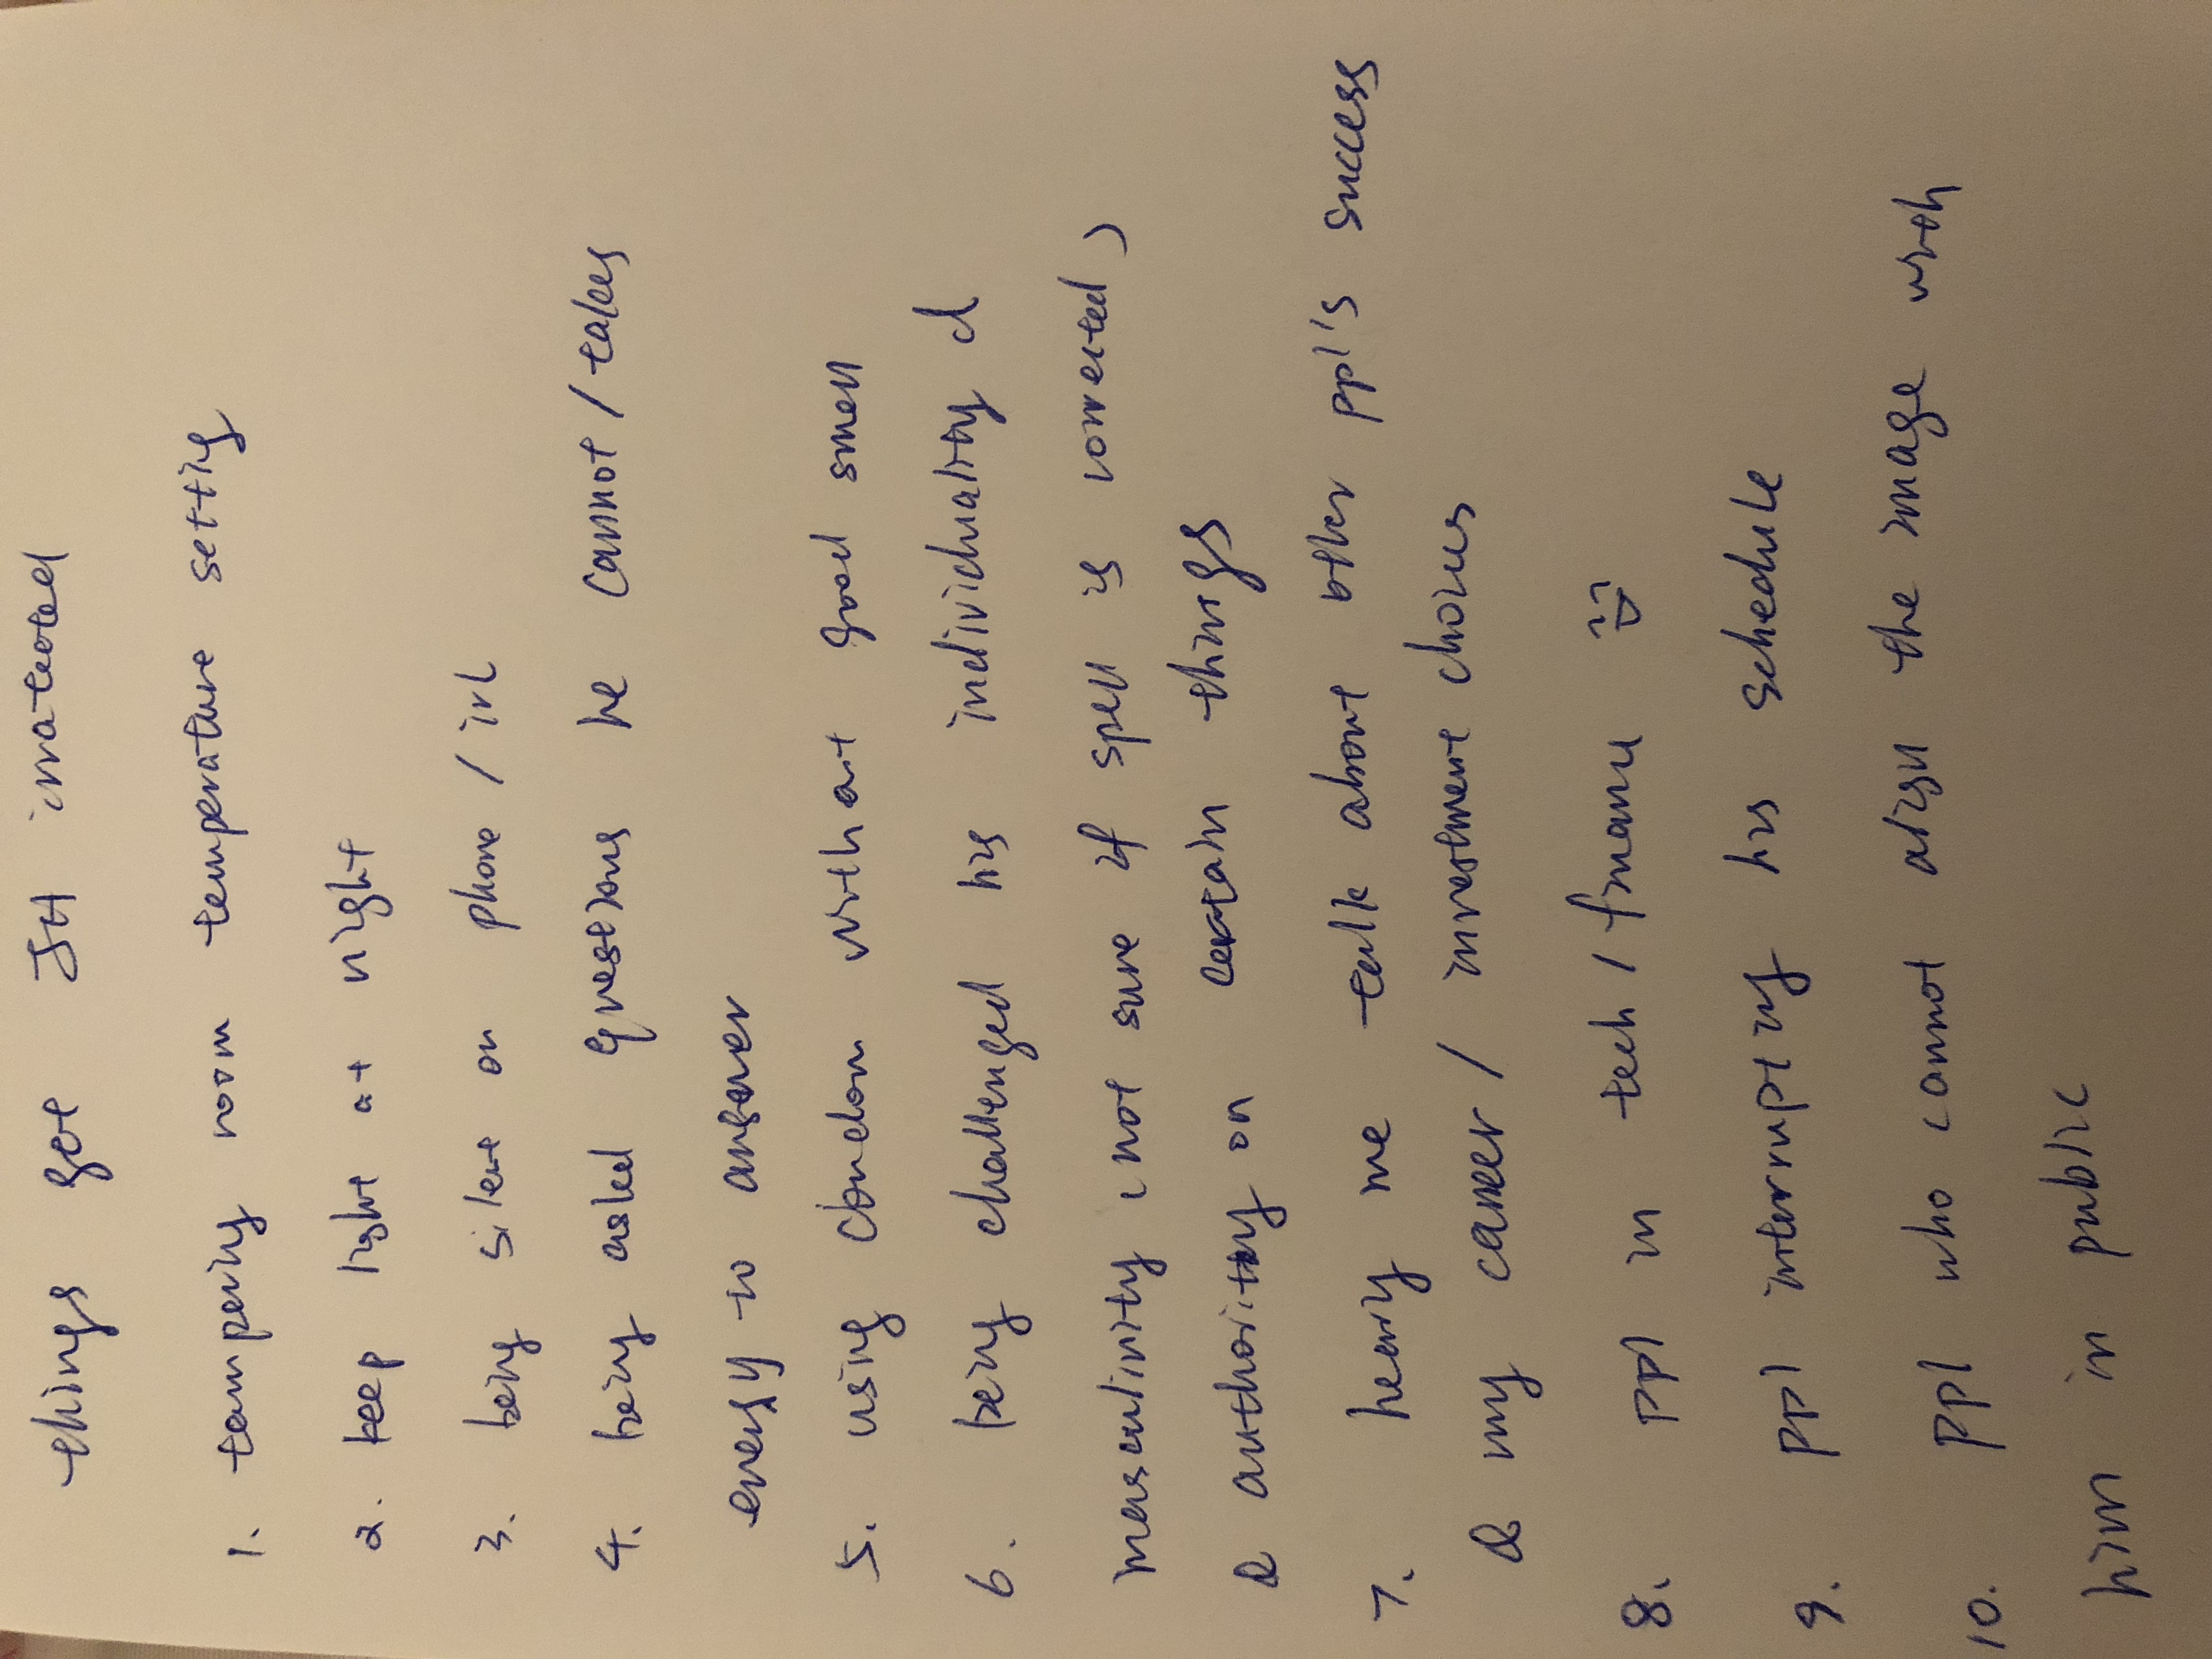 things get JH irratated
1. tampering room temperature settig
2. keep light at night
3. being silent on phone / irl
4. being asked questions he cannot / takes
energy to answer
5. using condom without good smell
6. being challenged his individuality &
masculinity (not sure if spell is corrected)
& authority on certain things
7. hearig me talk about other ppl's success
& my career / investment choices
8. ppl in tech / finance
9. ppl interrupting his schedule
10. ppl who cannot align the image with
him in public